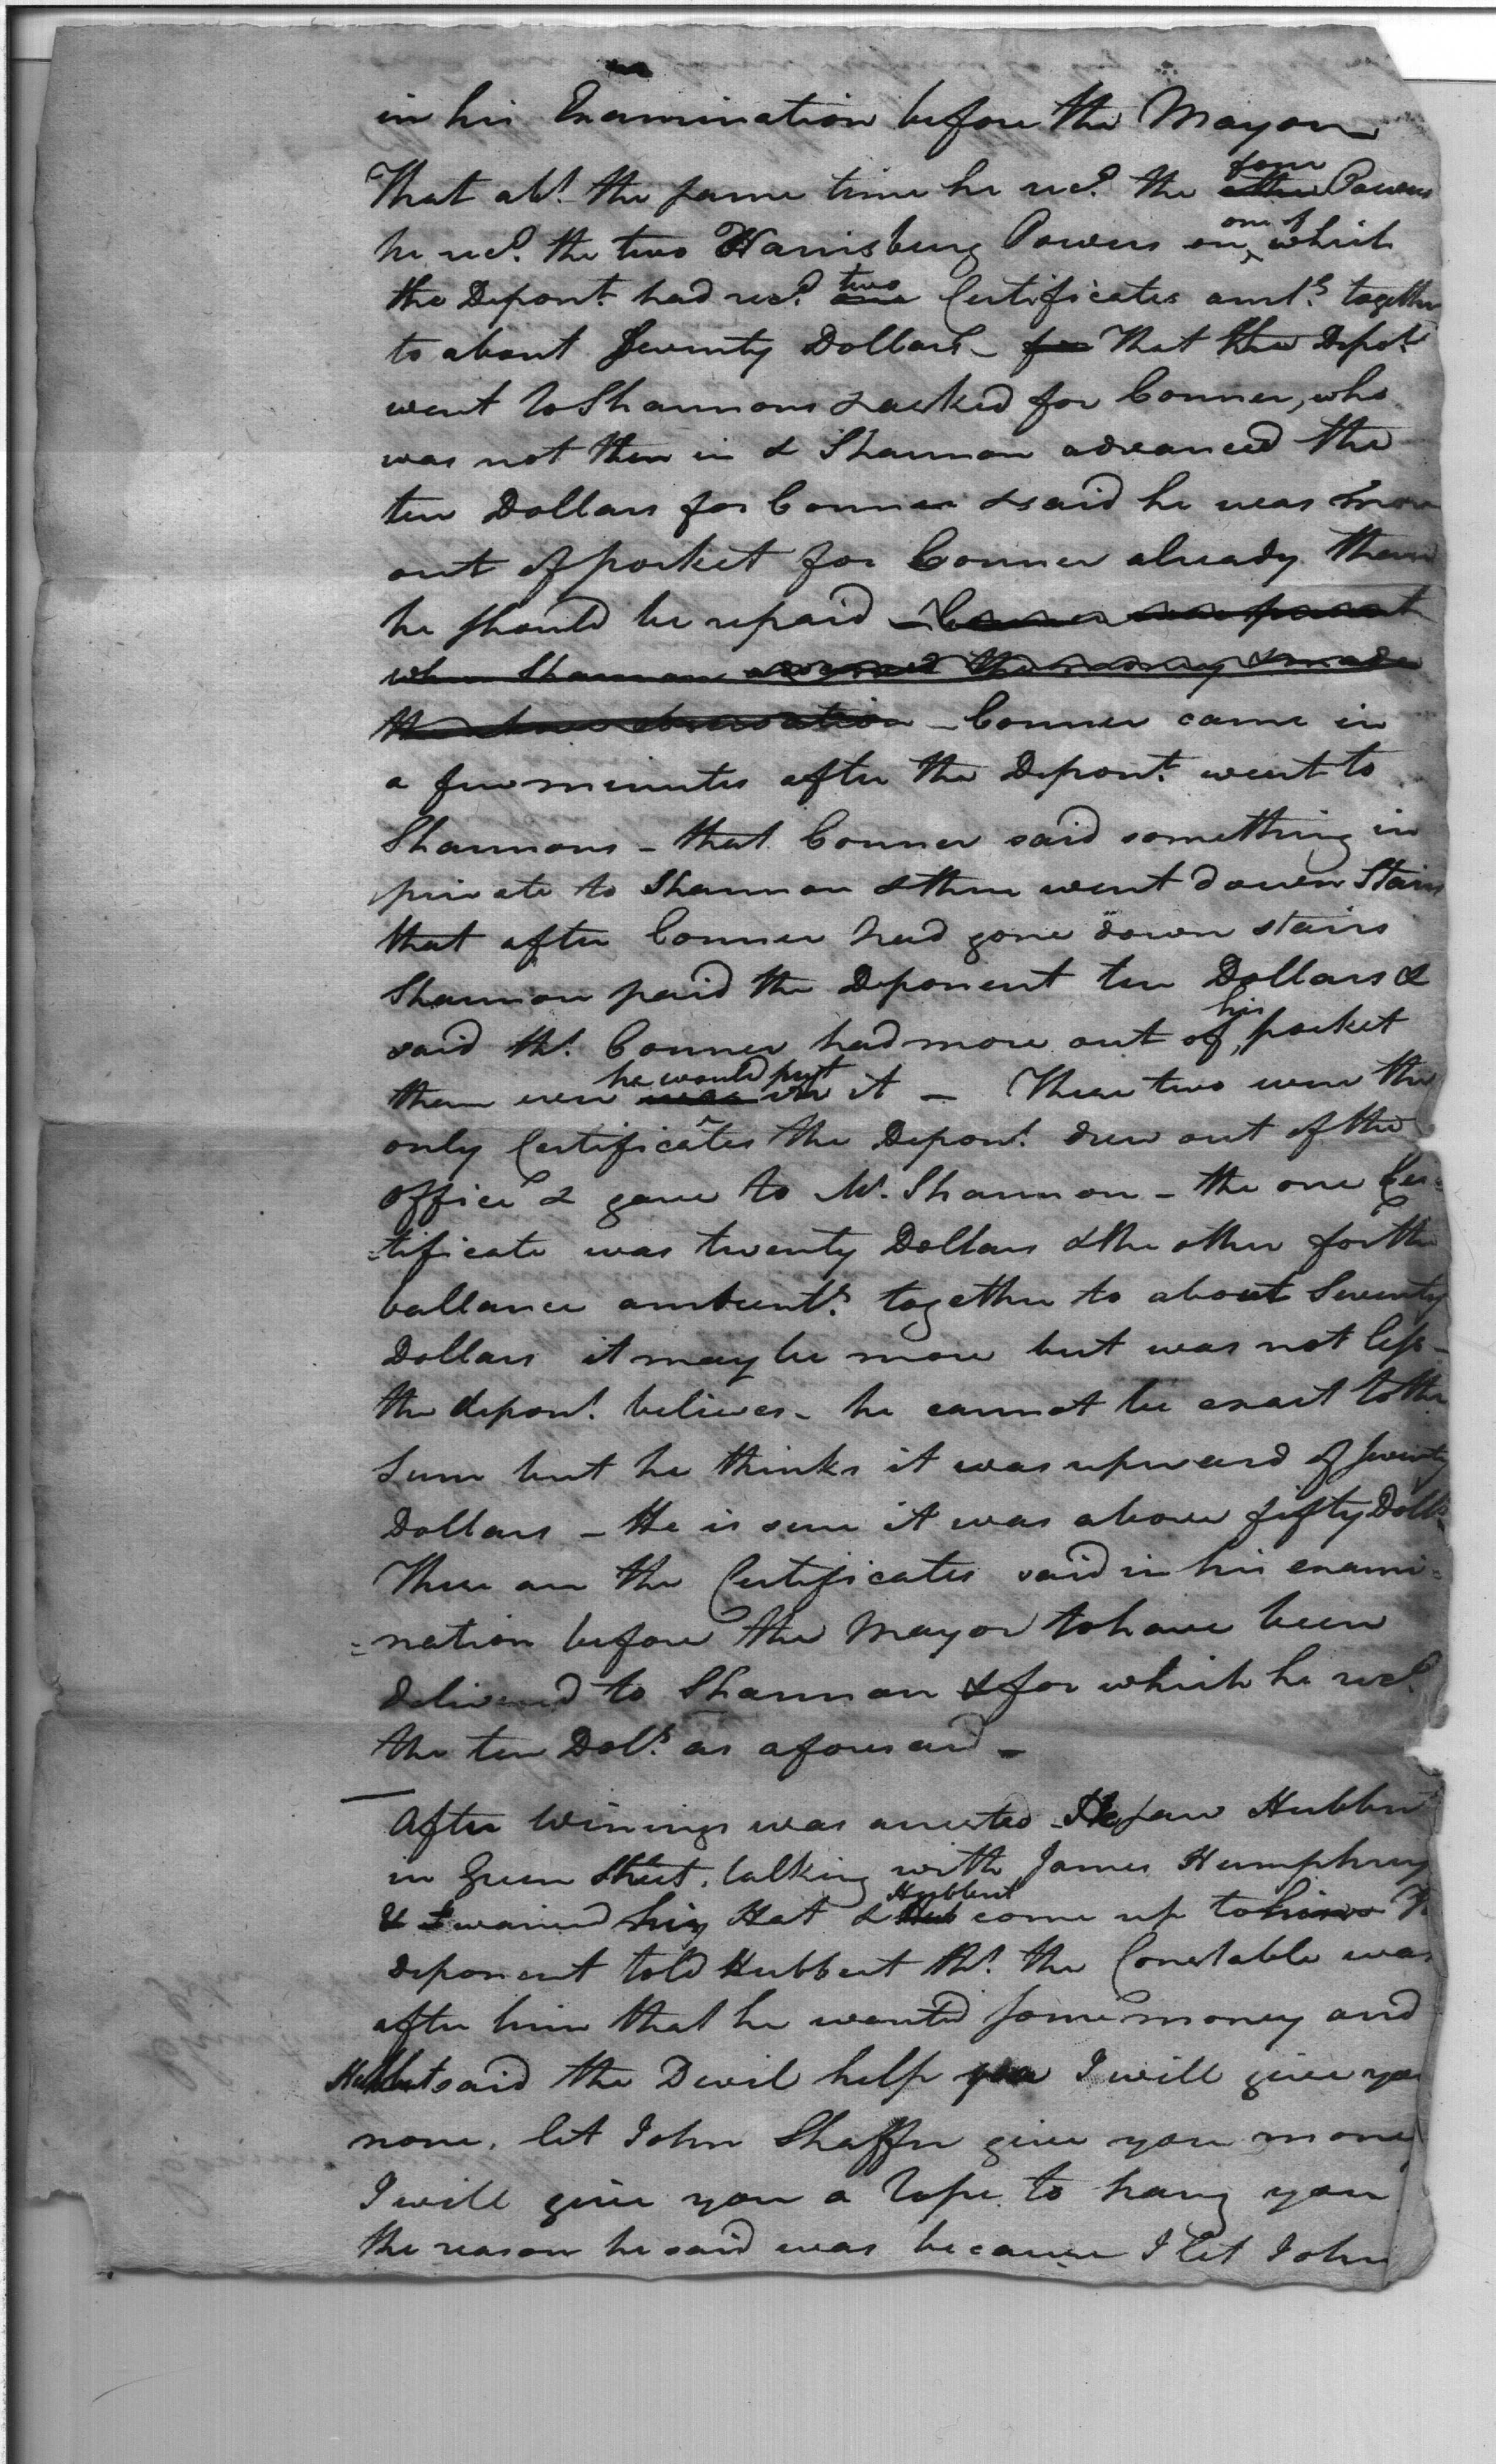 in his Examination before the Mayor
That abt. the same time he recd. the some other Powers
he recd. the two Harrisburg Powers on one of which
the Depont. had recd. two one Certificates amts. together
to about Seventy Dollars - for That the Depot.
went to Shannons & asked for Conner, who
was not then in & Shannon advanced the
ten Dollars for Conner & said he was more
out of pocket for Conner already than
he should be repaid - Conner was present
when Shannon advanced the money & made
the above observation - Conner came in
a few minutes after the Depont. went to
Shannons - that Conner said something in
private to Shannon & then went down Stairs
that after Conner had gone down stairs
Shannon paid the Deponent ten Dollars &
said tht. Conner had more out of his pocket
than ever he would put was in it - These two were the
only Certificates the Depont. drew out of the
office & gave to Mr. Shannon - the one Cer=
=tificate was twenty Dollars & the other for the
ballance amountg. together to about Seventy
Dollars it may be more but was not less -
the depont. believes - he cannot be exact to the
Sum but he thinks it was upward of seventy
Dollars - He is sure it was above fifty Dolls.
These are the Certificates said in his exami=
=nation before the Mayor to have been
delivered to Shannon & for which he recd.
the ten Dolls. as aforesaid -
After Winings was arrested He saw Hubbert
in Green Street, talking with James Humphrey
& I waived his Hat & Hubbert come up to him
deponent told Hubbert tht. the Constable was
after him that he wanted some money and
Hubbert said the Devil help you I will give you
none, let John Shaffer give you money
I will give you a rope to hang you
the reason he said was because I let John